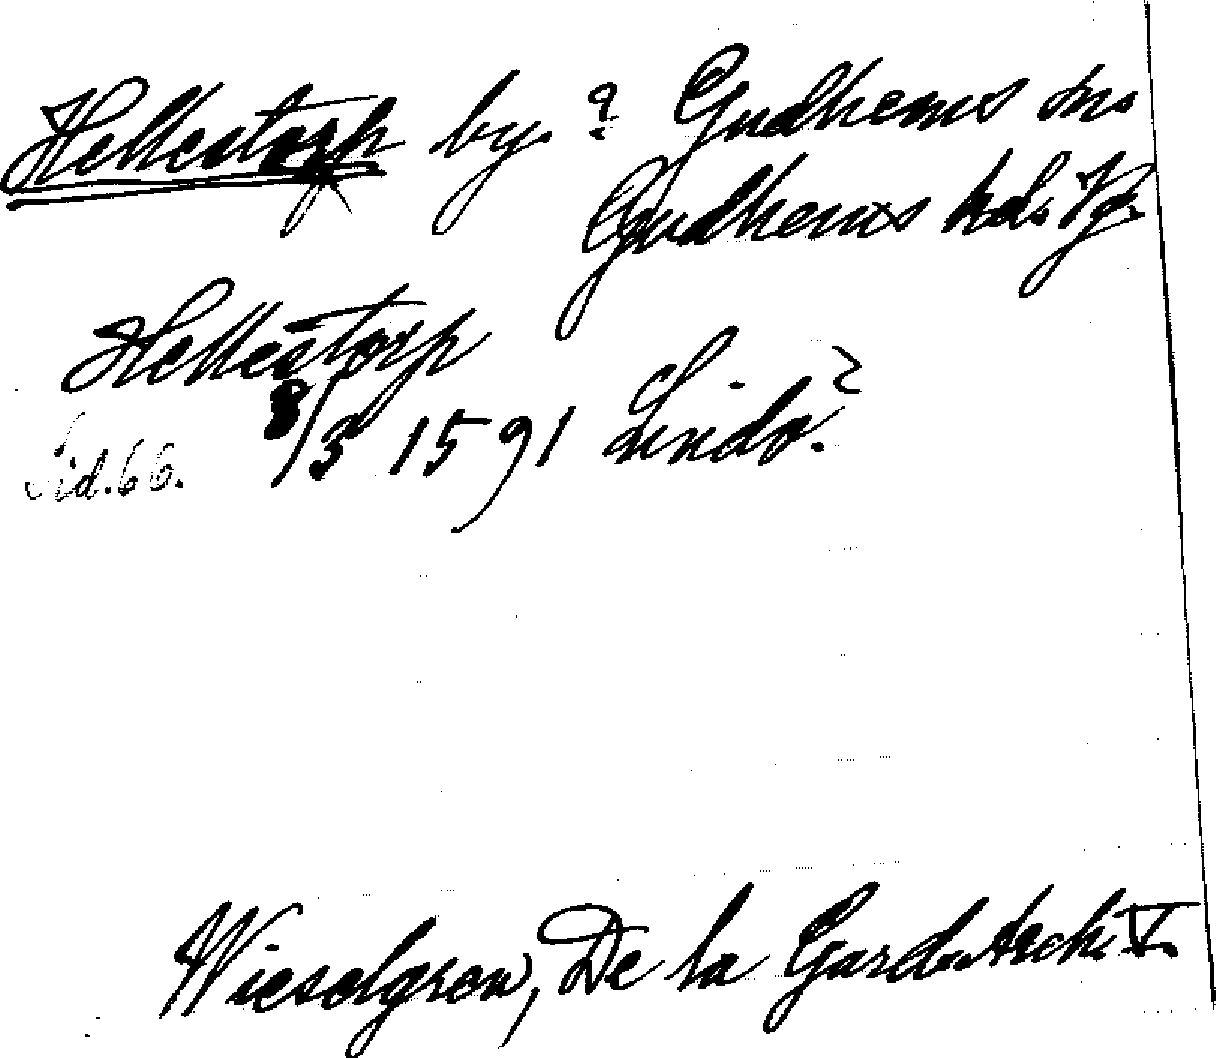 Hellestorp by. ? Gudhems sn.
Gudhems hd. Vg.
Hellestorp
Sid. 66. 8/3 1591 Lindö. ?
Wieselgren, De la Gard. Arch. V.